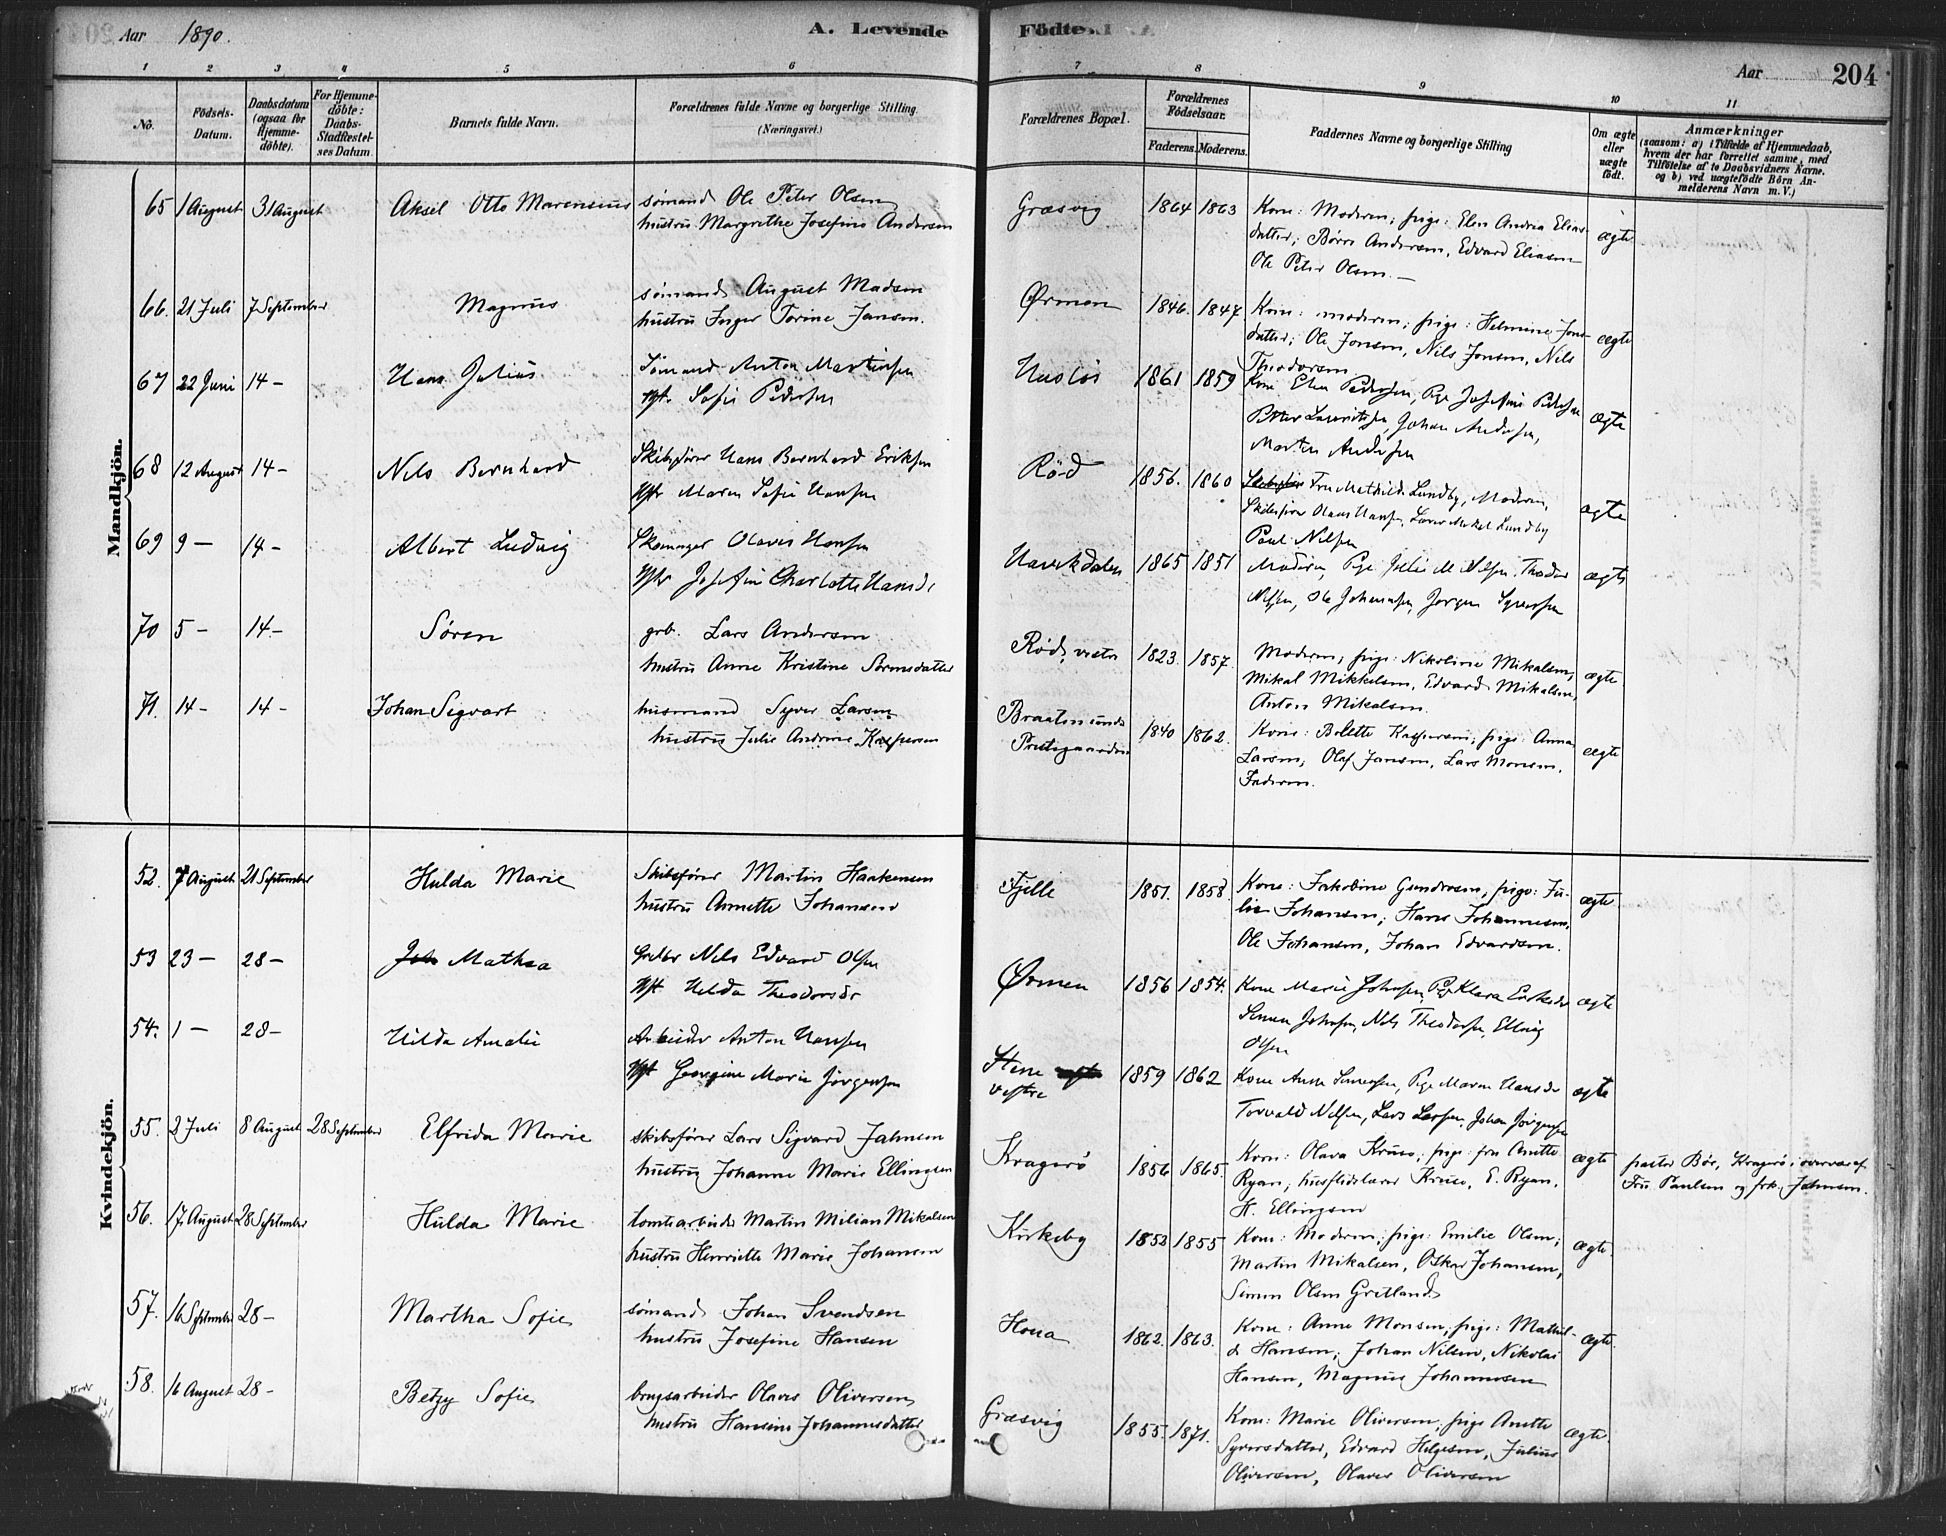 Aar 1890. A. Levende Födte. Aar 204
1 2 3 4 5 6 7 8 9 10 11
No.
Födsels-
Datum.
Daabsdatum
(ogsaa for
Hjemme-
döbte).
For Hjemme-
döbte:
Daabs-
Stadfæstel-
ses Datum.
Barnets fulde Navn.
Forældrenes fulde Navne og borgerlige Stilling.
(Næringsvei.)
Forældrenes Bopæl.
Forældrenes
Födselsaar.
Faderens. Moderens.
Faddernes Navne og borgerlige Stilling
Om ægte
eller
uægte
födt.
Anmærkninger
(saasom: a) i Tilfælde af Hjemmedaab,
hvem der har forrettet samme, med
Tilföielse af to Daabsvidners Navne.
og b) ved uægtefödte Börn An-
melderens Navn m. V.)
Mandkjön.
65 1 August 31 August Aksel Otto Marensius sømand Ole Peter Olsen
hustru Margrethe Josefine Andersen
Græsvig 1864 1863 Kone: Moderen; pige: Elen Andrea Elias-
datter; Børre Andersen, Edvard Eliasen
Ole Peter Olsen. —
ægte
66. 21 Juli 7 September Magnus sømand August Madsen
hustru Inger Torine Jansen.
Ørmen 1846. 1847. Kone: moderen; pige: Helmine Jons-
datter; Ole Jonsen, Nils Jonsen, Nils
Theodorsen
ægte
67 22 Juni 14 — Hans Julius Sømand Anton Martinsen
Hst. Sofie Pedersen
1861 1859 Kone Elen Pedersen, Pige Josefine Pedersen
Peter Lauritsen, Johan Andersen,
Morten Andersen
ægte
68 12 August 14 — Nils Bernhard Skibsfører Hans Bernhard Eriksen
Hstr Maren Sofie Hansen
Röd 1856. 1860 Fru Mathilde Lundby, Moderen,
Skibsfører Olaus Hansen, Lærer Mikal Lundby
Paul Nilsen
ægte
69 9 — 14 — Albert Ludvig Skomager Olavus Hansen
Hstr Josefine Charlotte Hansdr
1865 1851 Moderen, Pige Julie M Nilsen, Thodor
Nilsen, Ole Johannesen, Jørgen Syversen
ægte
70 5 — 14 — Søren grb. Lars Andersen
hustru Anne Kristine Sørensdatter
Rød, vestre 1823. 1857. Moderen; pige: Nikoline Mikalsen,
Mikal Mikkelsen, Edvard Mikalsen,
Anton Mikalsen.
ægte
71. 14 — 14 — Johan Sigvart husmand Syver Larsen
hustru Julie Andrine Kaspersen
Braaten under
Prestegaarden
1840 1862. Kone: Bolette Kaspersen; pige: Anna
Larsen; Olaf Jansen, Lars Monsen,
Faderen.
ægte
Kvindekjön.
52. 7 August 21 September Hulda Marie Skibsfører Martin Haakensen
hustru Annette Johansen
Fjelle 1851. 1858. Kone: Jakobine Gundersen; pige: Ju-
lie Johansen; Hans Johannesen,
Ole Johansen, Johan Edvardsen.
ægte
53 23 — 28 — Joh Mathea Grdbr Nils Edvard Olsen
Hst Hilda Theodorsdr
Ørmen 1856 1854. Kone Marie Johnsen, Pige Klara
Simen Johnsen, Nils Theodorsen, Elling
Olsen
ægte
54. 1 — 28 — Hilda Amalie Arbeider Anton Hansen
Hst Georgine Marie Jørgensen
Stene
Vestre
1859 1862 Kone Anne Simensen, Pige Maren Hansdr
Torvald Nilsen, Lars Larsen, Johan Jørgensen
ægte
55. 2 Juli 8 August 28 September Elfrida Marie skibsfører Lars Sigvard Jahnsen
hustru Johanne Marie Ellingsen
Kragerø 1856 1865. Kone: Olava Kruse; pige: fru Anette
Ryan; husflidslærer Kruse, E. Ryan.
H. Ellingsen
ægte pastor Bör, Kragerø i overvær af
Fru Paulsen og frk. Jahnsen.
56. 17 August 28 September Hulda Marie tomtearbeider Martin Milian Mikalsen
hustru Henriette Marie Johansen
Kirkeby 1853 1855 Kone: Moderen; pige: Emilie Olsen;
Martin Mikalsen, Oskar Johansen,
Simen Olsen Gretland.
ægte.
57. 16 September 28 — Martha Sofie sømand Johan Svendsen
hustru Josefine Hansen
Hona 1862. 1863. Kone: Anne Monsen; pige: Mathil-
de Hansen; Johan Nilsen, Nikolai
Hansen, Magnus Johannesen
ægte.
58. 16 August 28 — Betzy Sofie brugsarbeider Olaves Oliversen
hustru Hansine Johannesdatter
Græsvig 1855. 1871. Kone: Marie Oliversen; pige Anette
Syversdatter, Edvard Helgesen, Julius
Oliversen, Olaves Oliversen
ægte.